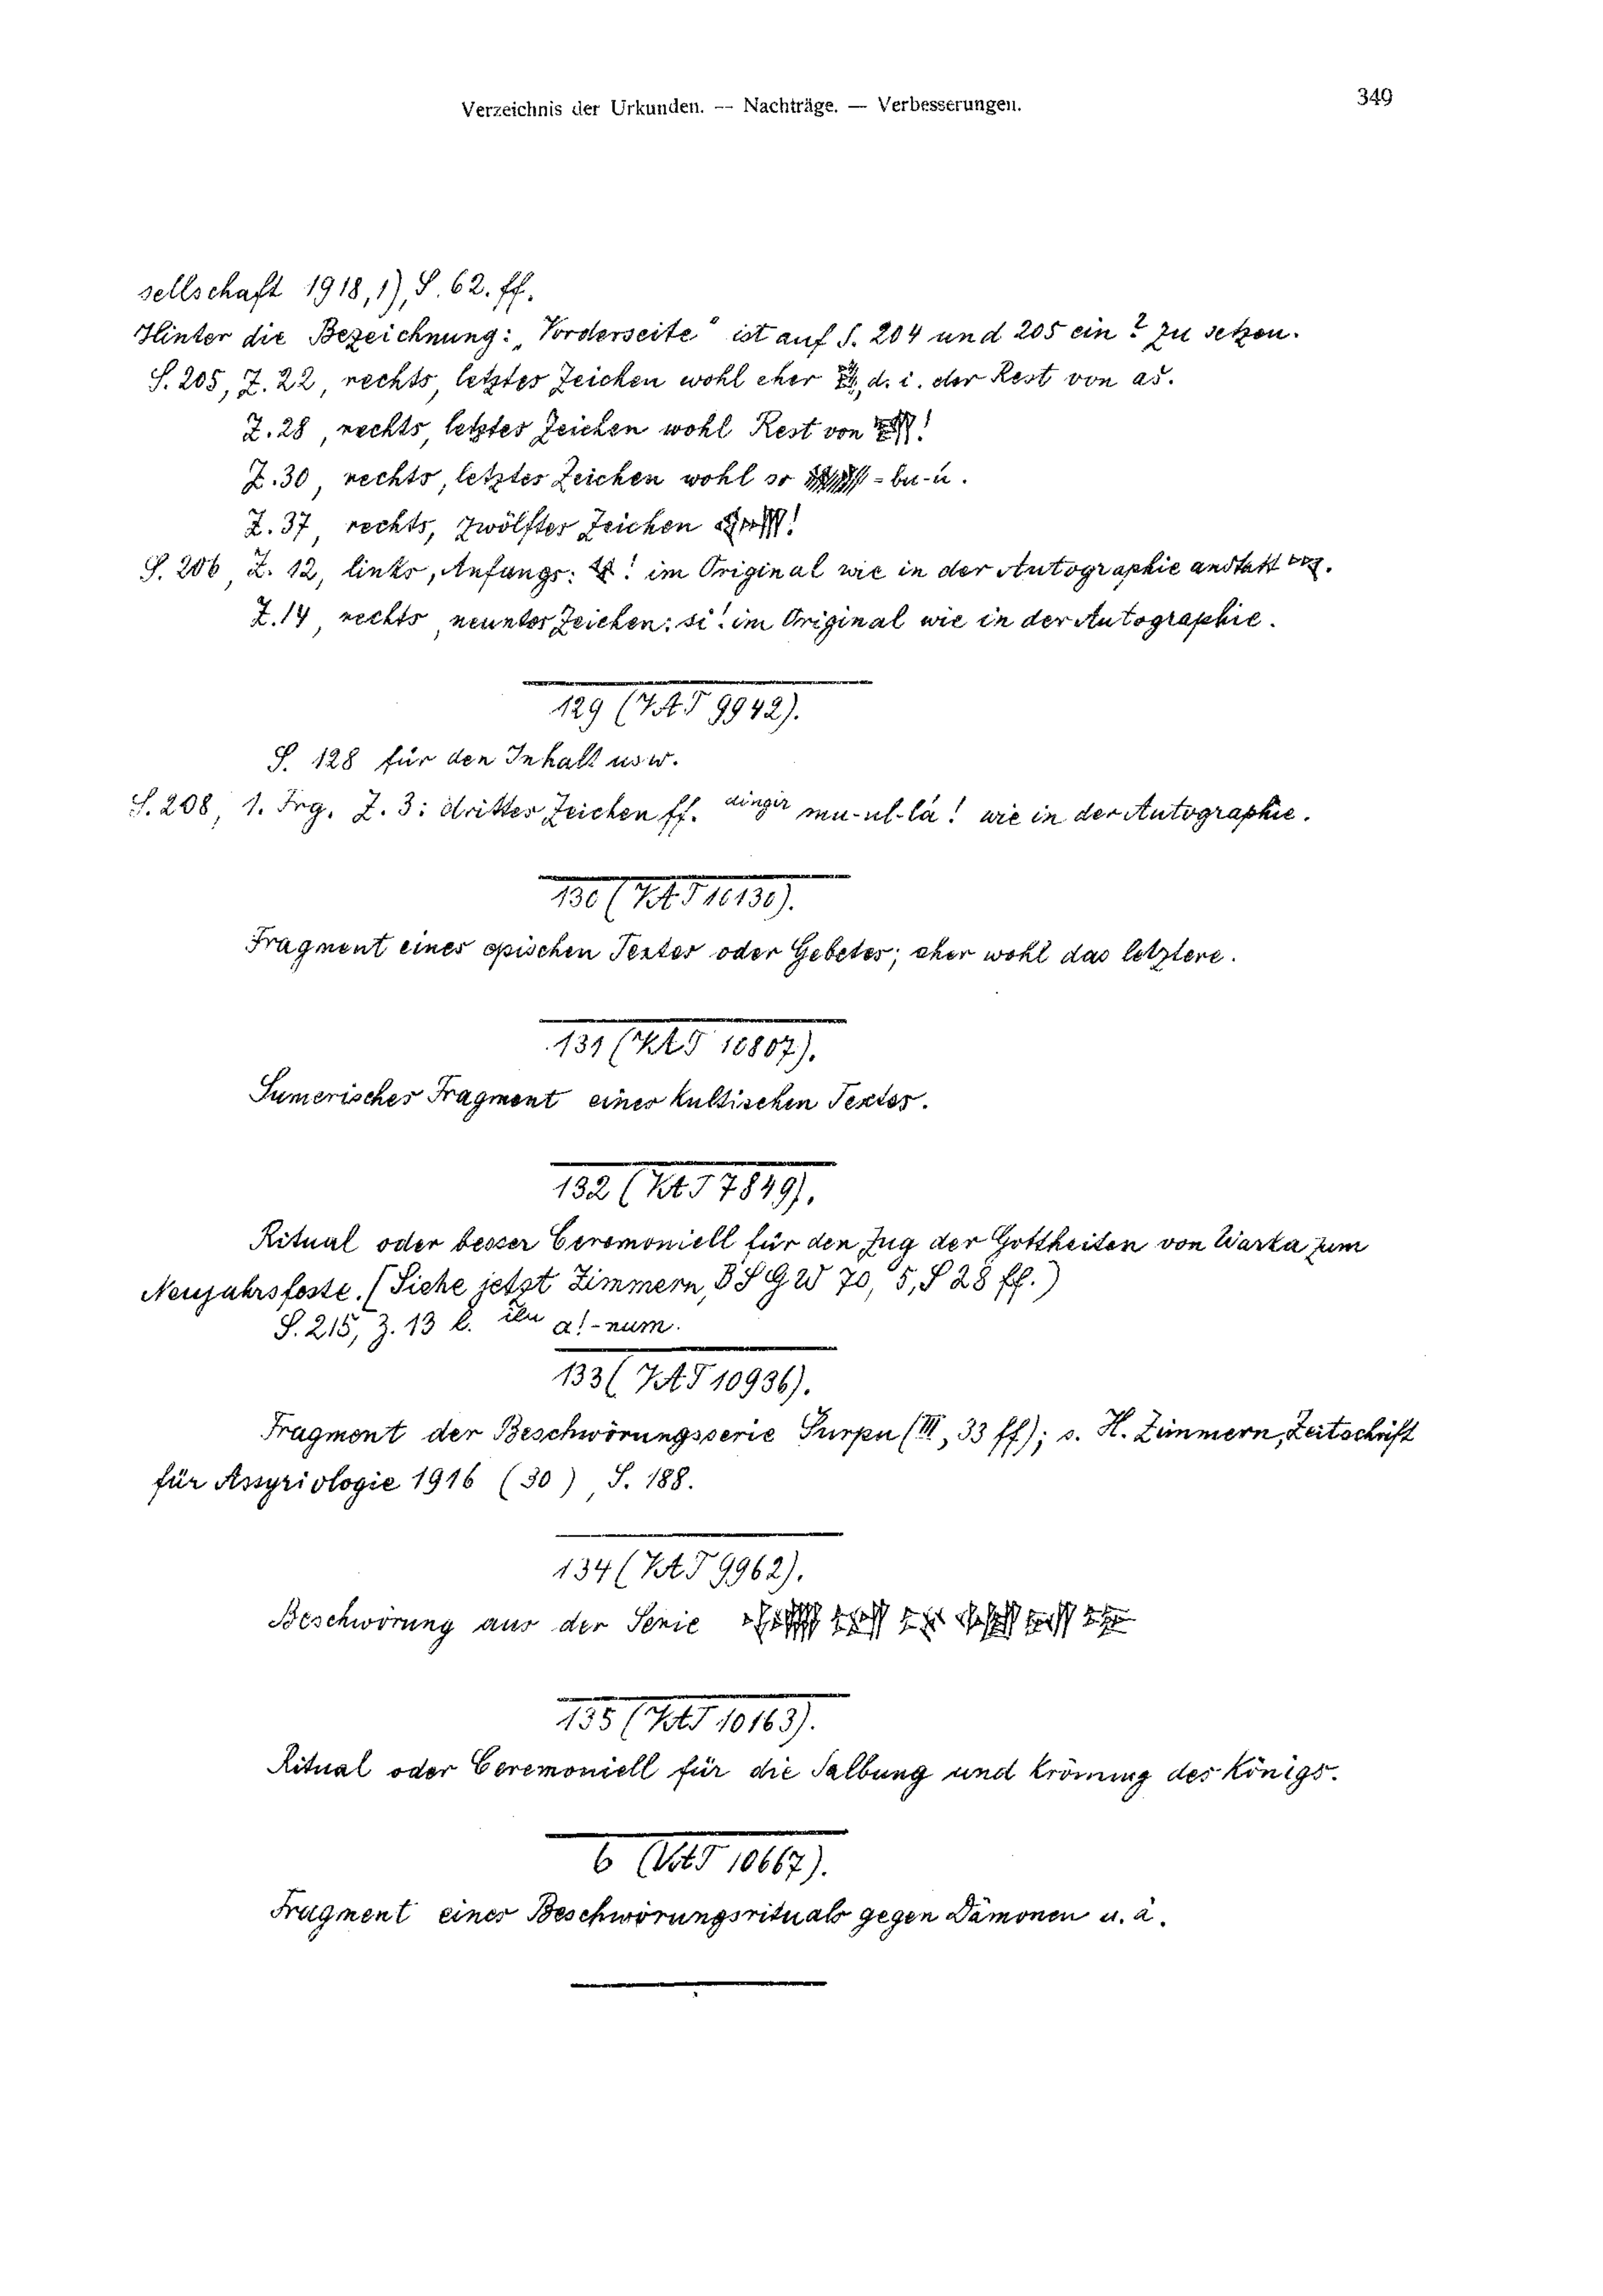 Verzeichnis der Urkunden. — Nachträge. — Verbesserungen. 349
sellschaft 1918,1), S. 62. ff.
Hinter die Bezeichnung: „Vorderseite“ ist auf S. 204 und 205 ein ? zu setzen.
S. 205, Z. 22, rechts, letztes Zeichen wohl eher , d. i. der Rest von as.
Z. 28, rechts, letztes Zeichen wohl Rest von !
Z. 30, rechts, letztes Zeichen wohl so - bu-u.
Z. 37, rechts, zwölftes Zeichen !
S. 206, Z. 12, links, Anfangs: ! im Original wie in der Autographie anstatt .
Z. 14, rechts, neuntes Zeichen: si! im Original wie in der Autographie.
129 (VAT 9942).
S. 128 für den Inhalt usw.
S. 208, 1. Frg. Z. 3: drittes Zeichen ff. dingir mu-ul-lá! wie in der Autographie.
130 (VAT 10130).
Fragment eines epischen Textes oder Gebetes; eher wohl das letztere.
131 (VAT 10807).
Sumerisches Fragment eines kultischen Textes.
132 (VAT 7849).
Ritual oder besser Ceremoniell für den Zug der Gottheiten von Warka zum
Neujahrsfeste. (Siehe jetzt Zimmern, BSGW 70, 5, S 28 ff.)
S. 215, Z. 13 l. ilu a!-num.
133 (VAT 10936).
Fragment der Beschwörungsserie Šurpu (III, 33 ff); s. H. Zimmern, Zeitschrift
für Assyriologie 1916 (30), S. 188.
134 (VAT 9962).
Beschwörung aus der Serie
135 (VAT 10163).
Ritual oder Ceremoniell für die Salbung und Krönung des Königs.
6 (VAT 10667).
Fragment eines Beschwörungsrituals gegen Dämonen u. ä.